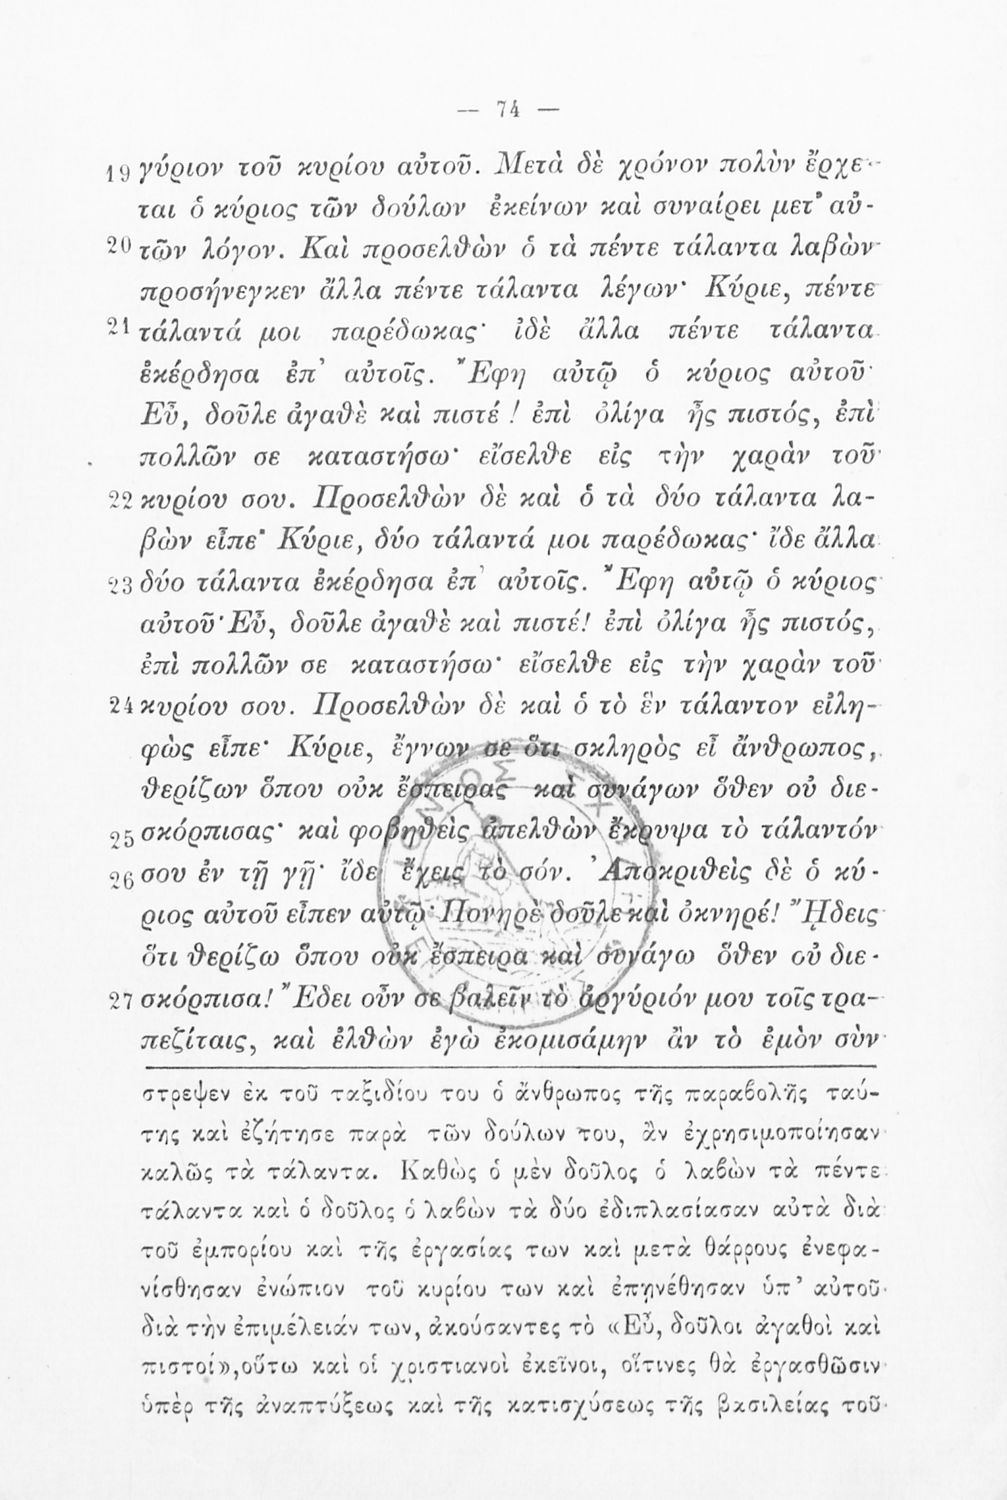 — 74 —
19 γύριον τοῦ κυρίου αὐτοῦ. Μετὰ δὲ χρόνον πολὺν ἔρχε-
ται ὁ κύριος τῶν δούλων ἐκείνων καὶ συναίρει μετ' αὐ-
20 τῶν λόγον. Καὶ προσελθὼν ὁ τὰ πέντε τάλαντα λαβὼν
προσήνεγκεν ἄλλα πέντε τάλαντα λέγων· Κύριε, πέντε
21 τάλαντά μοι παρέδωκας· ἰδὲ ἄλλα πέντε τάλαντα
ἐκέρδησα ἐπ' αὐτοῖς. Ἔφη αὐτῷ ὁ κύριος αὐτοῦ·
Εὖ, δοῦλε ἀγαθὲ καὶ πιστέ! ἐπὶ ὀλίγα ἦς πιστός, ἐπὶ
πολλῶν σε καταστήσω· εἴσελθε εἰς τὴν χαρὰν τοῦ
22 κυρίου σου. Προσελθὼν δὲ καὶ ὁ τὰ δύο τάλαντα λα-
βὼν εἶπε· Κύριε, δύο τάλαντά μοι παρέδωκας· ἴδε ἄλλα
23 δύο τάλαντα ἐκέρδησα ἐπ' αὐτοῖς. Ἔφη αὐτῷ ὁ κύριος
αὐτοῦ· Εὖ, δοῦλε ἀγαθὲ καὶ πιστέ! ἐπὶ ὀλίγα ἦς πιστός,
ἐπὶ πολλῶν σε καταστήσω· εἴσελθε εἰς τὴν χαρὰν τοῦ
24 κυρίου σου. Προσελθὼν δὲ καὶ ὁ τὸ ἓν τάλαντον εἰλη-
φὼς εἶπε· Κύριε, ἔγνων σε ὅτι σκληρὸς εἶ ἄνθρωπος,
θερίζων ὅπου οὐκ ἔσπειρας καὶ συνάγων ὅθεν οὐ διε-
25 σκόρπισας· καὶ φοβηθεὶς ἀπελθὼν ἔκρυψα τὸ τάλαντόν
26 σου ἐν τῇ γῇ· ἴδε ἔχεις τὸ σόν. Ἀποκριθεὶς δὲ ὁ κύ-
ριος αὐτοῦ εἶπεν αὐτῷ· Πονηρὲ δοῦλε καὶ ὀκνηρέ! Ἤδεις
ὅτι θερίζω ὅπου οὐκ ἔσπειρα καὶ συνάγω ὅθεν οὐ διε-
27 σκόρπισα! Ἔδει οὖν σε βαλεῖν τὸ ἀργύριόν μου τοῖς τρα-
πεζίταις, καὶ ἐλθὼν ἐγὼ ἐκομισάμην ἂν τὸ ἐμὸν σὺν
στρεψεν ἐκ τοῦ ταξιδίου του ὁ ἄνθρωπος τῆς παραβολῆς ταύ-
της καὶ ἐζήτησε παρὰ τῶν δούλων του, ἂν ἐχρησιμοποίησαν
καλῶς τὰ τάλαντα. Καθὼς ὁ μὲν δοῦλος ὁ λαβὼν τὰ πέντε
τάλαντα καὶ ὁ δοῦλος ὁ λαβὼν τὰ δύο ἐδιπλασίασαν αὐτὰ διὰ
τοῦ ἐμπορίου καὶ τῆς ἐργασίας των καὶ μετὰ θάρρους ἐνεφα-
νίσθησαν ἐνώπιον τοῦ κυρίου των καὶ ἐπῃνέθησαν ὑπ' αὐτοῦ
διὰ τὴν ἐπιμέλειάν των, ἀκούσαντες τὸ «Εὖ, δοῦλοι ἀγαθοὶ καὶ
πιστοί», οὕτω καὶ οἱ χριστιανοὶ ἐκεῖνοι, οἵτινες θὰ ἐργασθῶσιν
ὑπὲρ τῆς ἀναπτύξεως καὶ τῆς κατισχύσεως τῆς βασιλείας τοῦ